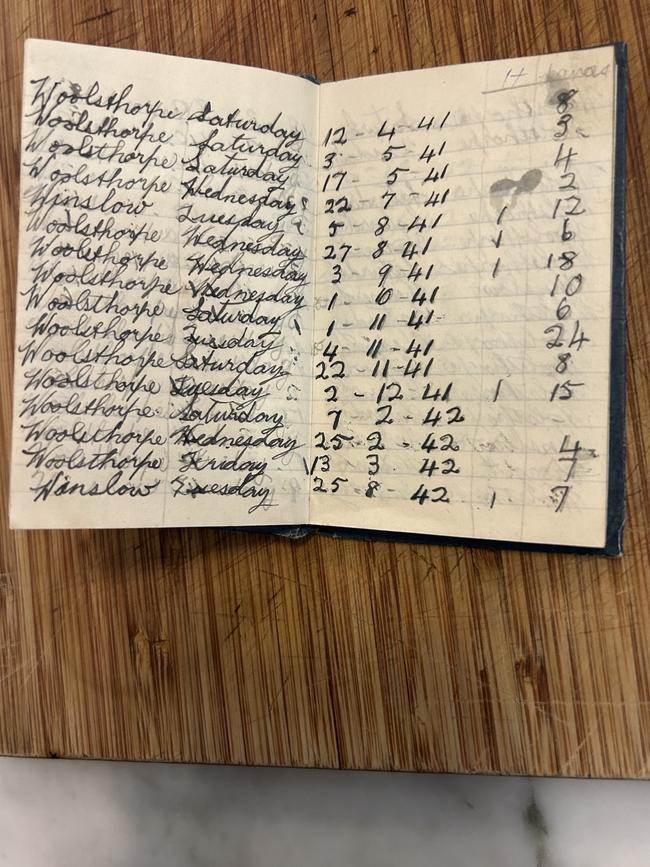 H
Woolsthorpe Saturday 12 - 4 - 41 8
Woolsthorpe Saturday 3 - 5 - 41 3
Woolsthorpe Saturday 17 - 5 - 41 4
Woolsthorpe Wednesday 22 - 7 - 41 2
Winslow Tuesday 5 - 8 - 41 1 12
Woolsthorpe Wednesday 27 - 8 - 41 1 6
Woolsthorpe Wednesday 3 - 9 - 41 1 18
Woolsthorpe Wednesday 1 - 10 - 41 10
Woolsthorpe Saturday 1 - 11 - 41 6
Woolsthorpe Tuesday 4 - 11 - 41 24
Woolsthorpe Saturday 22 - 11 - 41 8
Woolsthorpe Tuesday 2 - 12 - 41 1 15
Woolsthorpe Saturday 7 - 2 - 42 -
Woolsthorpe Wednesday 25 - 2 - 42 4
Woolsthorpe Friday 13 3 . 42 7
Winslow Tuesday 25 8 - 42 1 7